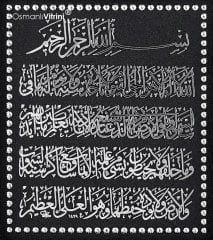 OsmanlıVitrini
بسم الله الرحمن الرحيم
الله لا إله إلا هو الحي القيوم لا تأخذه سنة ولا نوم له ما في
السموات وما في الأرض من ذا الذي يشفع عنده إلا بإذنه يعلم ما بين أيديهم
وما خلفهم ولا يحيطون بشيء من علمه إلا بما شاء وسع كرسيه السموات
والأرض ولا يؤده حفظهما وهو العلي العظيم